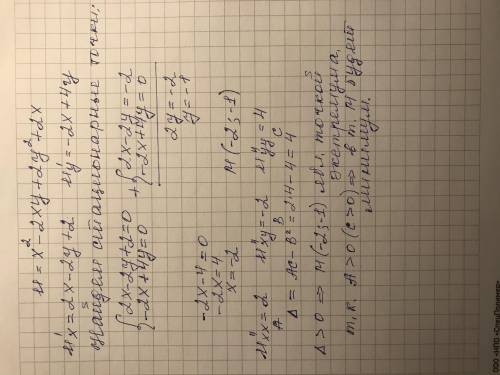 u = x² - 2xy + 2y² + 2x
u'x = 2x - 2y + 2   u'y = -2x + 4y
Найдем стационарные точки:
{2x - 2y + 2 = 0   + {2x - 2y = -2
{-2x + 4y = 0   {-2x + 4y = 0
2y = -2
y = -1
-2x - 4 = 0
-2x = 4
x = -2
M(-2; -1)
u''xx = 2   u''xy = -2   u''yy = 4
A   B   C
Δ = AC - B² = 2·4 - 4 = 4
Δ > 0 ⇒ M(-2; -1) явл. точкой
экстремума,
т.к. A > 0 (C > 0) ⇒ в т. M будет
минимум.